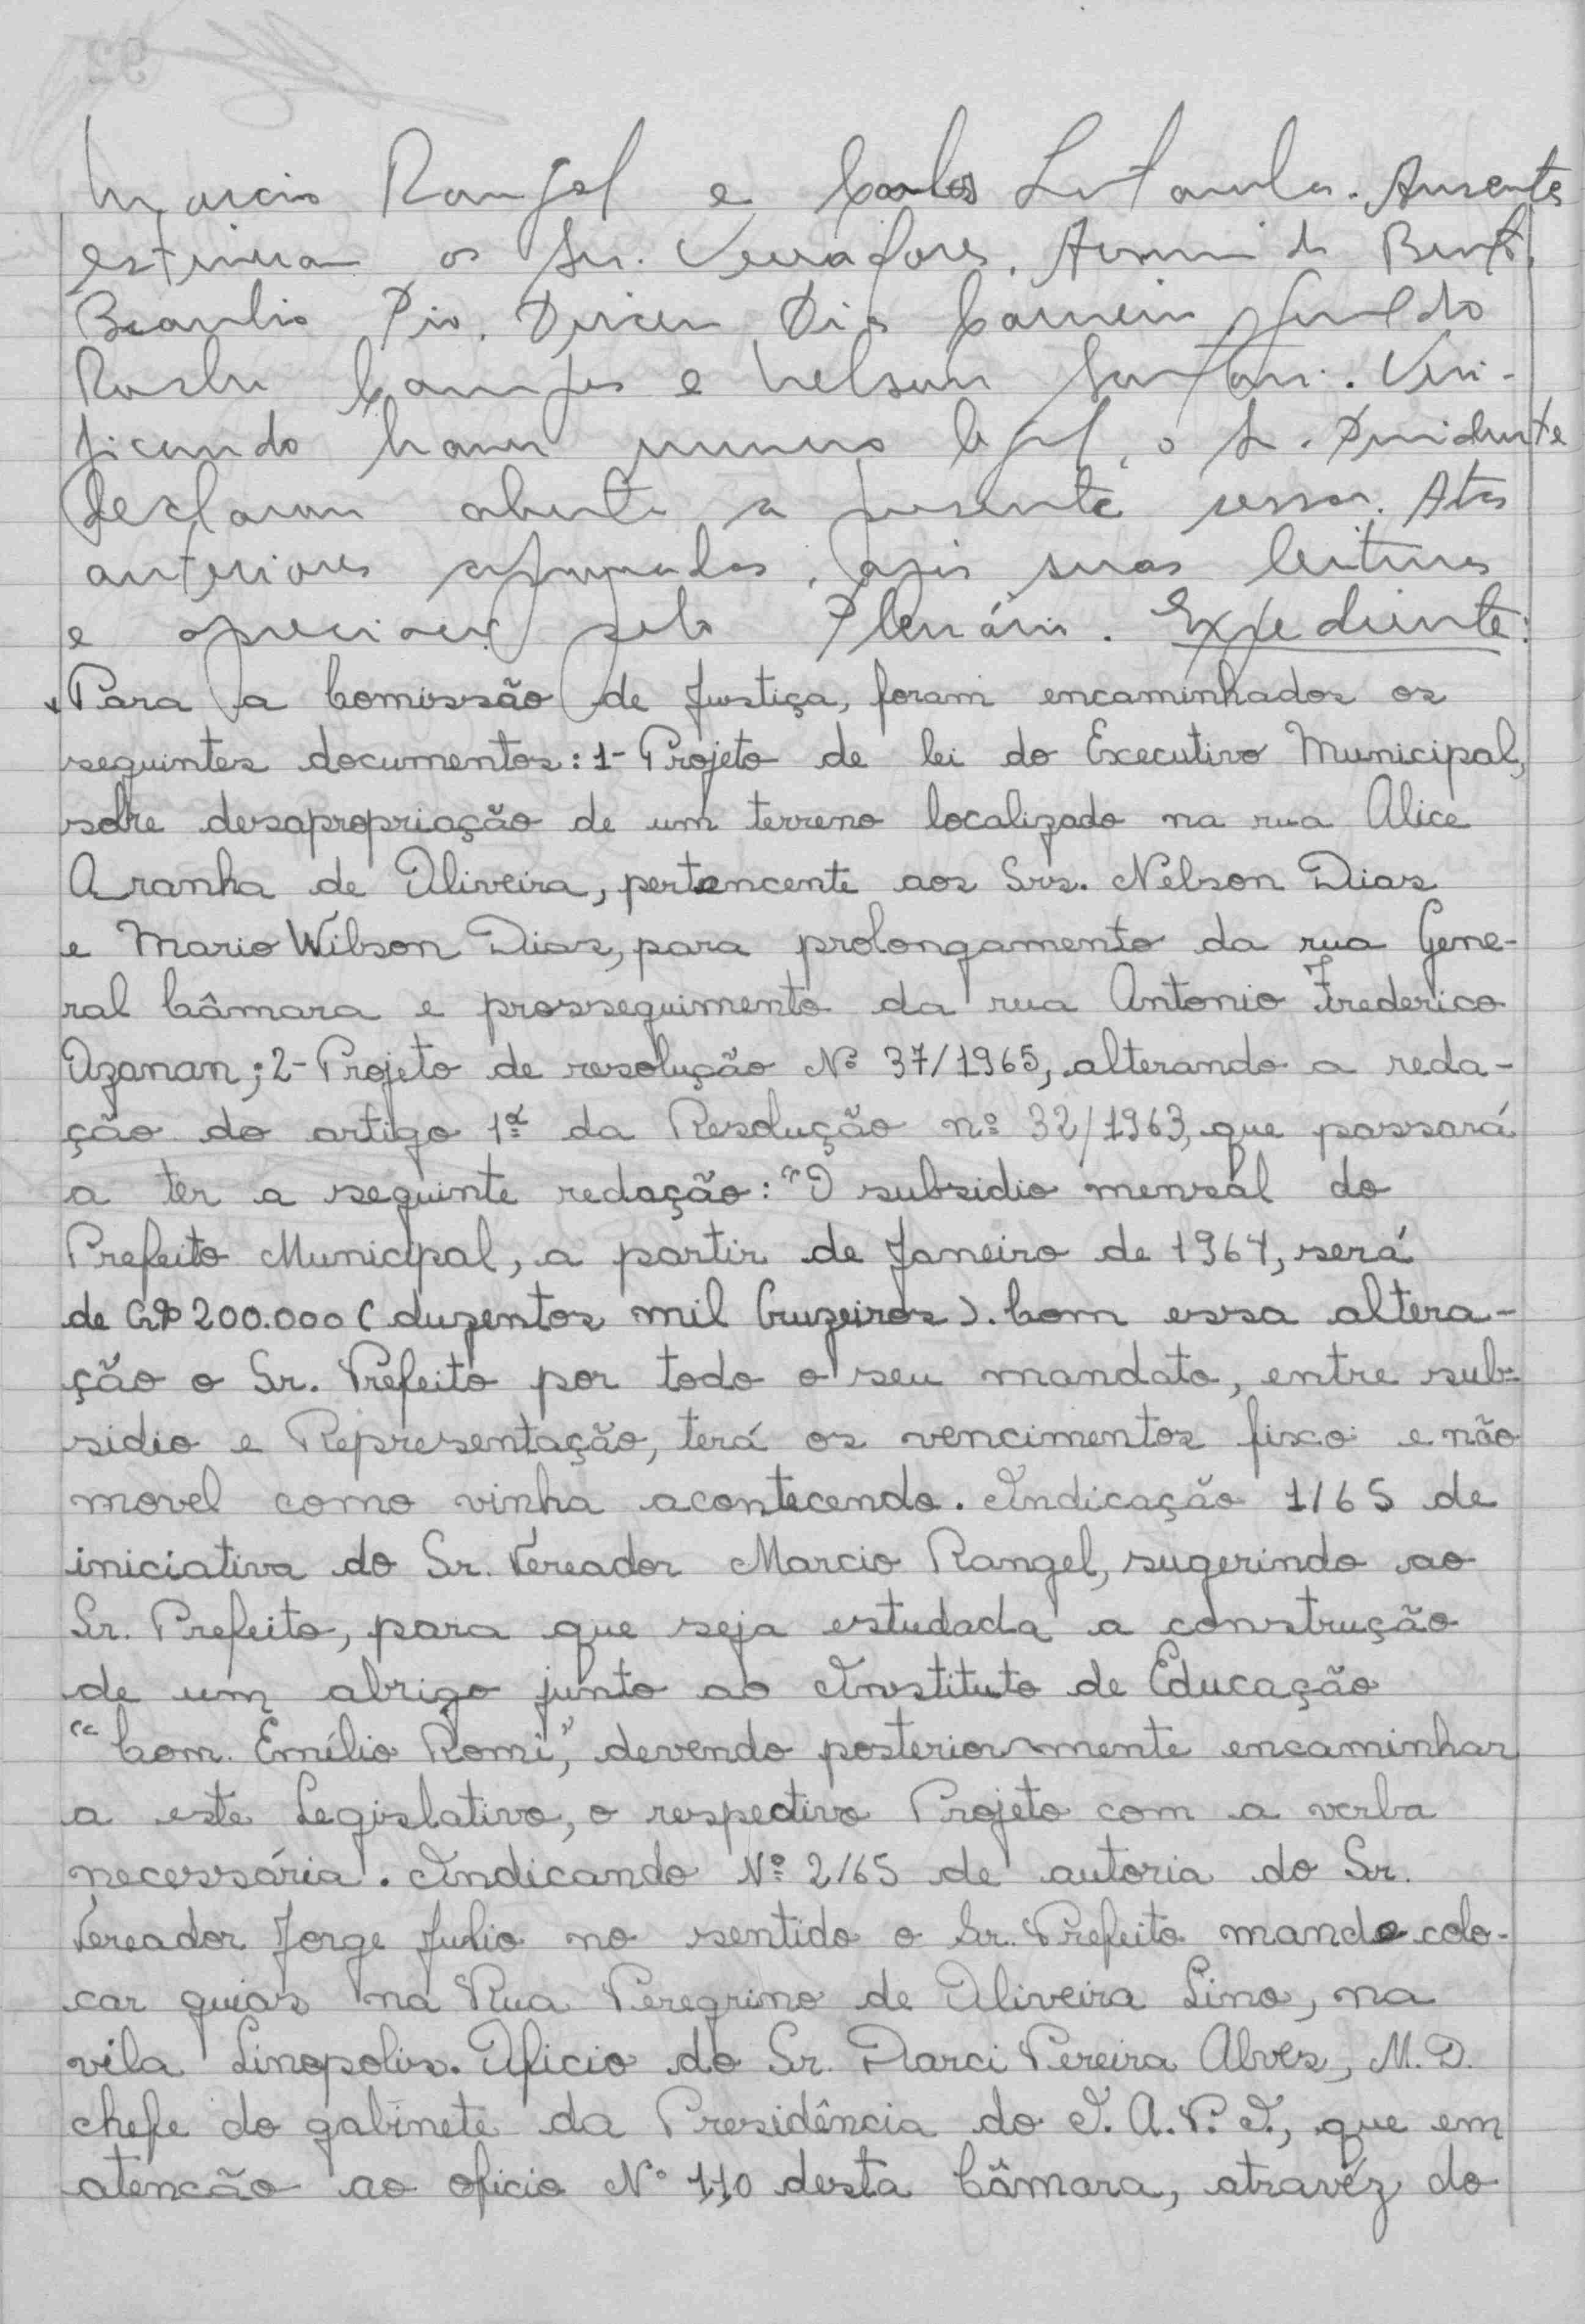 Marcio Rangel e Carlos. Ausentes
estiveram os Srs. Vereadores,
Braulio Pio, Dirceu Dias Carneiro,
Rocha Campos e Nelson. Veri-
ficando haver numero legal, o Sr. Presidente
declarou aberta a presente sessão. Atas
anteriores aprovadas, após suas leituras
e pelo Plenário. Expediente:
Para a Comissão de Justiça, foram encaminhados os
seguintes documentos: 1- Projeto de lei do Executivo Municipal,
sobre desapropriação de um terreno localizado na rua Alice
Aranha de Oliveira, pertencente aos Srs. Nelson Dias
e Mario Wilson Dias, para prolongamento da rua Gene-
ral Câmara e prosseguimento da rua Antonio Frederico
Ozanan; 2- Projeto de resolução Nº 37/1965, alterando a reda-
ção do artigo 1º da Resolução nº 32/1963, que passará
a ter a seguinte redação: "O subsidio mensal do
Prefeito Municipal, a partir de Janeiro de 1964, será
de Cr$ 200.000 (duzentos mil Cruzeiros). Com essa altera-
ção o Sr. Prefeito por todo o seu mandato, entre sub-
sidio e Representação, terá os vencimentos fixo e não
movel como vinha acontecendo. Indicação 1/65 de
iniciativa do Sr. Vereador Marcio Rangel, sugerindo ao
Sr. Prefeito, para que seja estudada a construção
de um abrigo junto ao Instituto de Educação
"Com. Emílio Romi", devendo posteriormente encaminhar
a este Legislativo, o respectivo Projeto com a verba
necessária. Indicando Nº 2/65 de autoria do Sr.
Vereador Jorge Julio no sentido o Sr. Prefeito mande colo-
car guias na Rua Peregrino de Oliveira Lino, na
vila Linopolis. Oficio do Sr. Darci Pereira Alves, M.D.
chefe do gabinete da Presidência do I.A.P.I., que em
atencão ao oficio Nº 110 desta Câmara, atravéz do